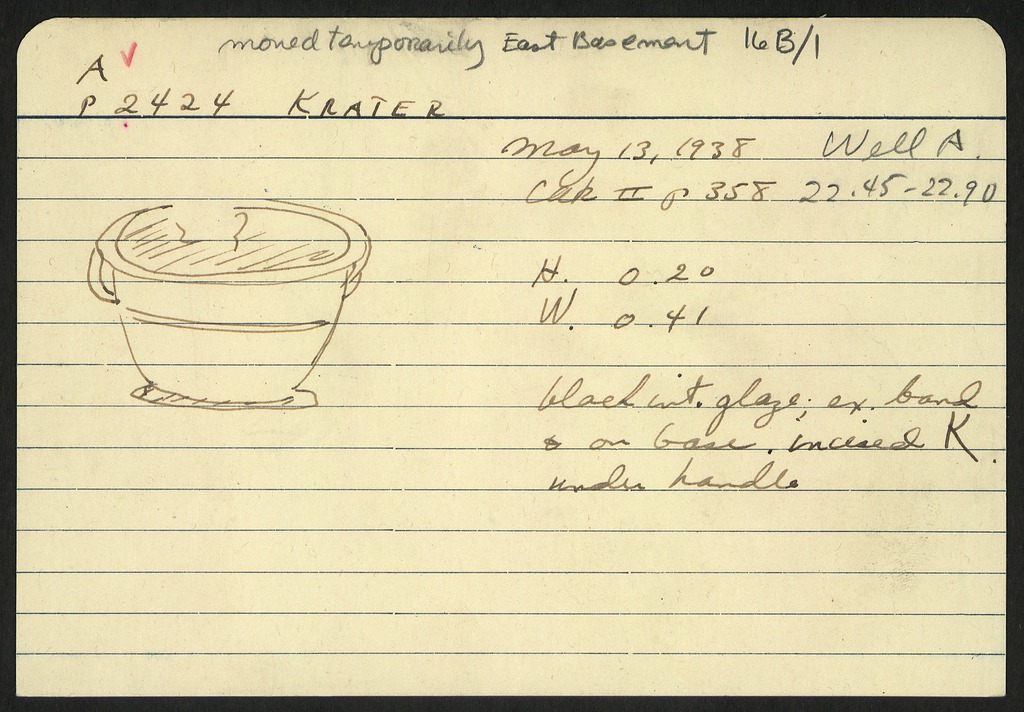 moved temporarily East Basement 16B/1
A ✓
P 2424 KRATER
May 13, 1938 Well A.
Cak II p 358 22.45-22.90
H. 0.20
W. 0.41
black int. glaze; ex. band
& on base. incised K.
under handle